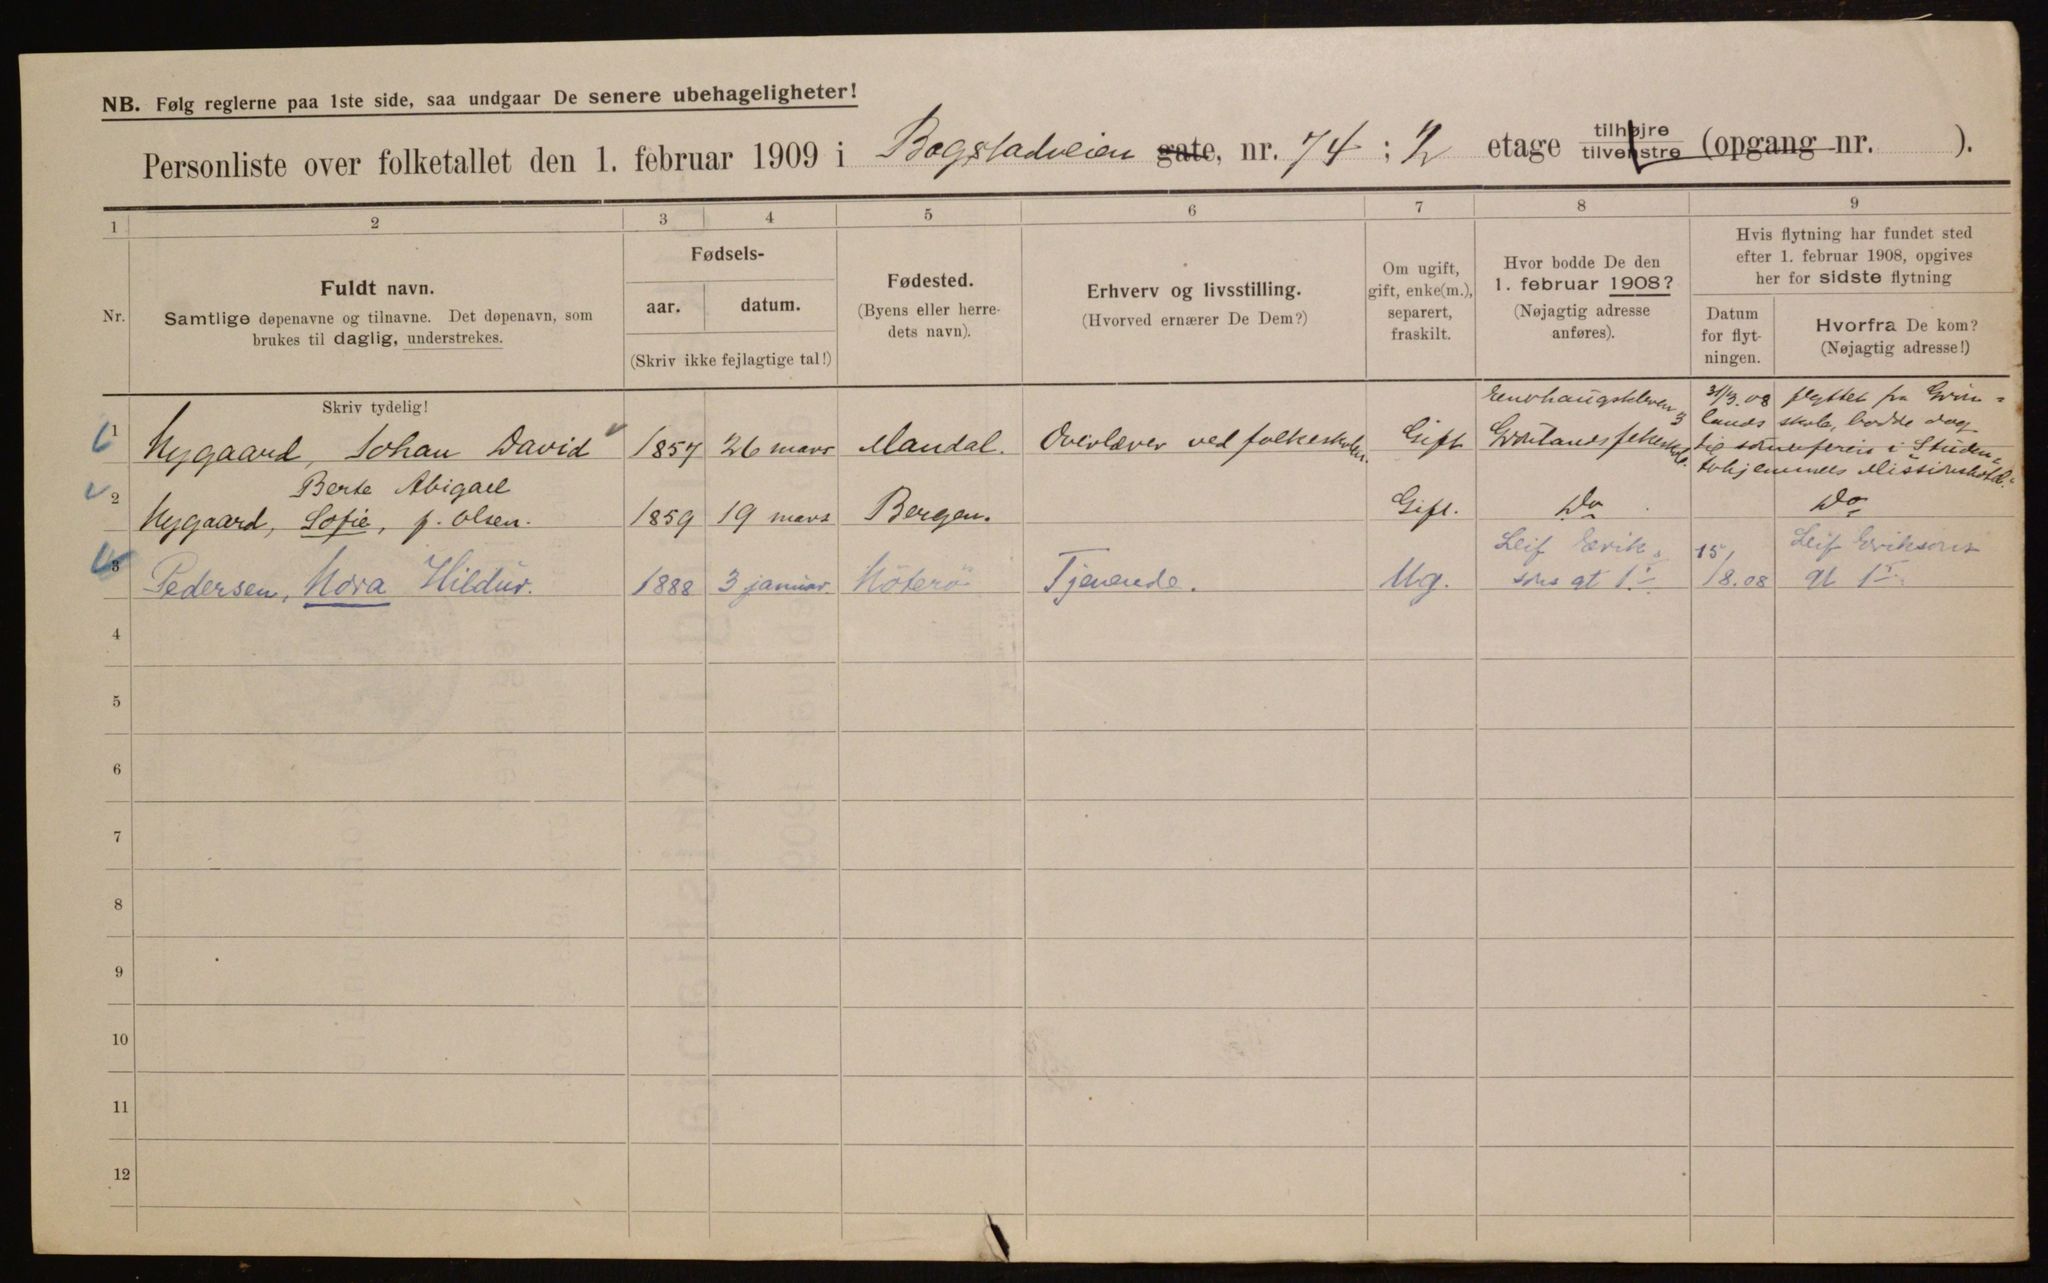 NB. Følg reglerne paa 1ste side, saa undgaar De senere ubehageligheter!
Personliste over folketallet den 1. februar 1909 i Bogstadveien gate, nr. 74 ; 2 etage tilhøjre tilvenstre (opgang nr. ).
1 2 3 4 5 6 7 8 9
Nr.
Fuldt navn.
Samtlige døpenavne og tilnavne. Det døpenavn, som
brukes til daglig, understrekes.
Skriv tydelig!
Fødsels-
aar. datum.
(Skriv ikke fejlagtige tal!)
Fødested.
(Byens eller herre-
dets navn).
Erhverv og livsstilling.
(Hvorved ernærer De Dem?)
Om ugift,
gift, enke(m.),
separert,
fraskilt.
Hvor bodde De den
1. februar 1908?
(Nøjagtig adresse
anføres).
Hvis flytning har fundet sted
efter 1. februar 1908, opgives
her for sidste flytning
Datum
for flyt-
ningen.
Hvorfra De kom?
(Nøjagtig adresse!)
1 Nygaard, Johan David 1857 26 mars Mandal. Overlærer ved folkeskolen. Gift
Grønlands
31/3.08 flyttet fra Grøn-
lands skole, bodde
i Studen-
terhjemmets Missionshotel.
Berte Abigael
2 Nygaard, Sofie, f. Olsen. 1859 19 mars Bergen. Gift. Do Do
3 Pedersen, Nora Hildur. 1888 3 januar. Nöterö Tjenende. Ug.
Leif Erik-
sons gt 15
15/8.08
Leif Eriksons
gt 15
4
5
6
7
8
9
10
11
12